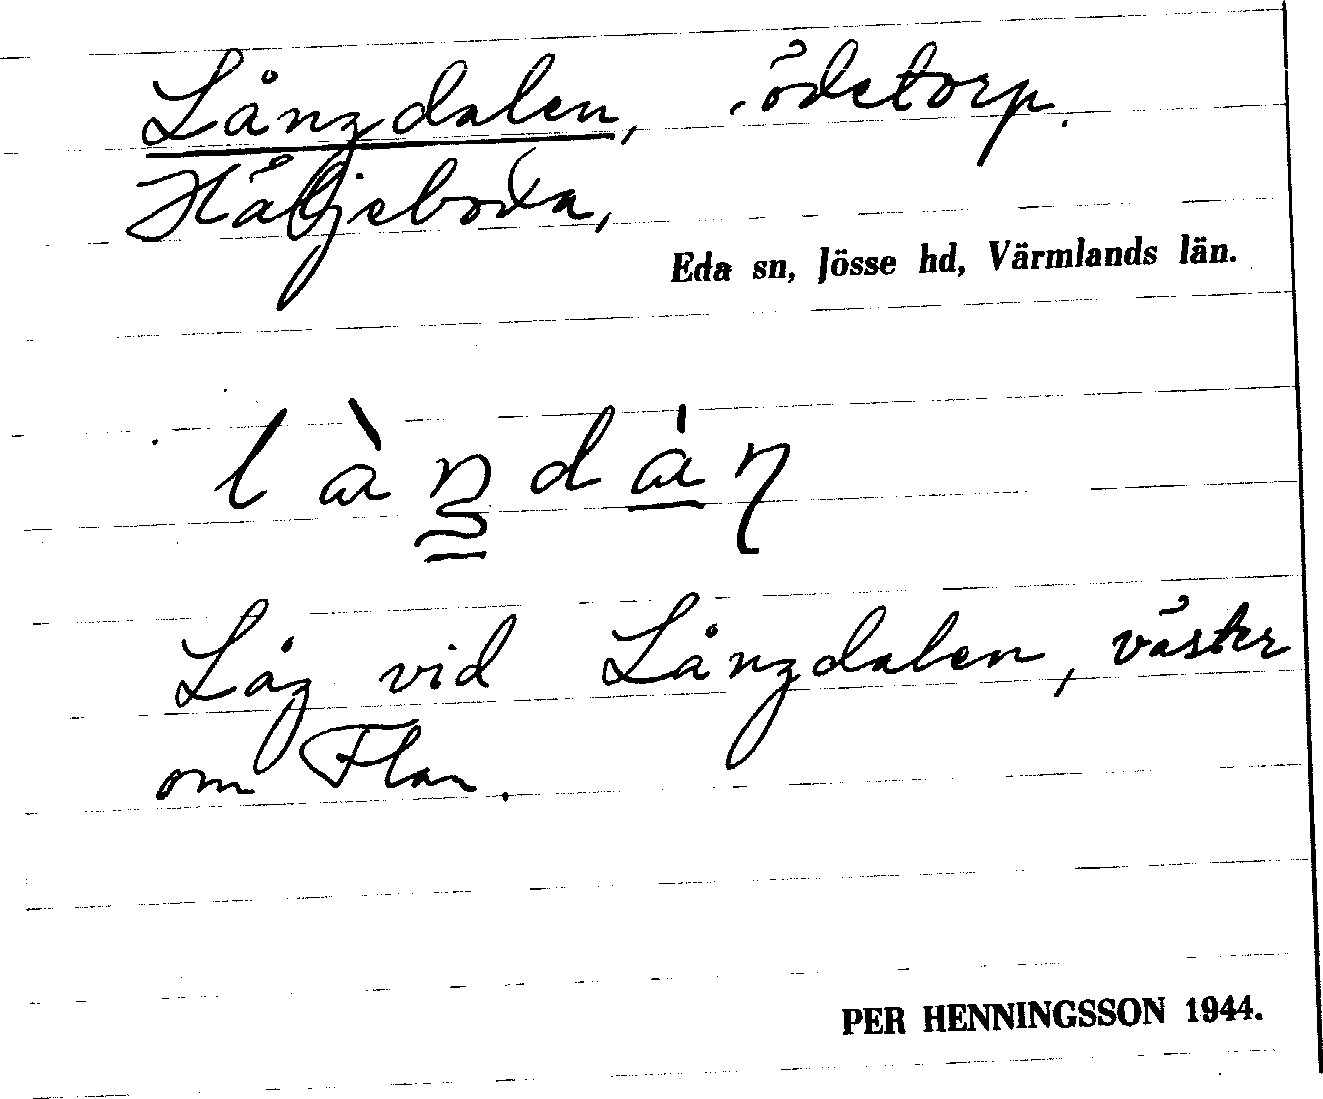 Långdalen, ödetorp.
Håljeboda,
Eda sn, Jösse hd, Värmlands län.
làŋdáņ
Låg vid Långdalen, väster
om Flan.
PER HENNINGSSON 1944.